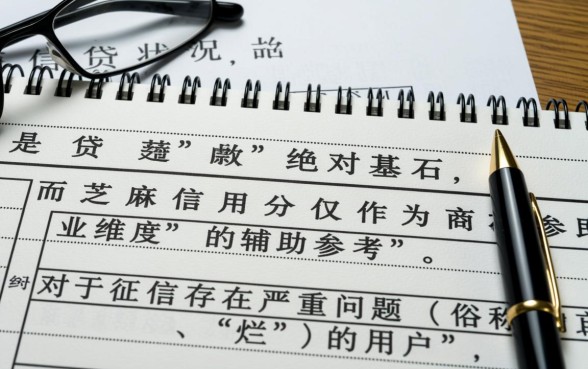 信贷状况，
是贷 ” ”绝对基石，
而芝麻信用分仅作为商 参
业维度”的辅助参考”。
对于征信存在严重问题（俗称
、“烂”）的用户”，